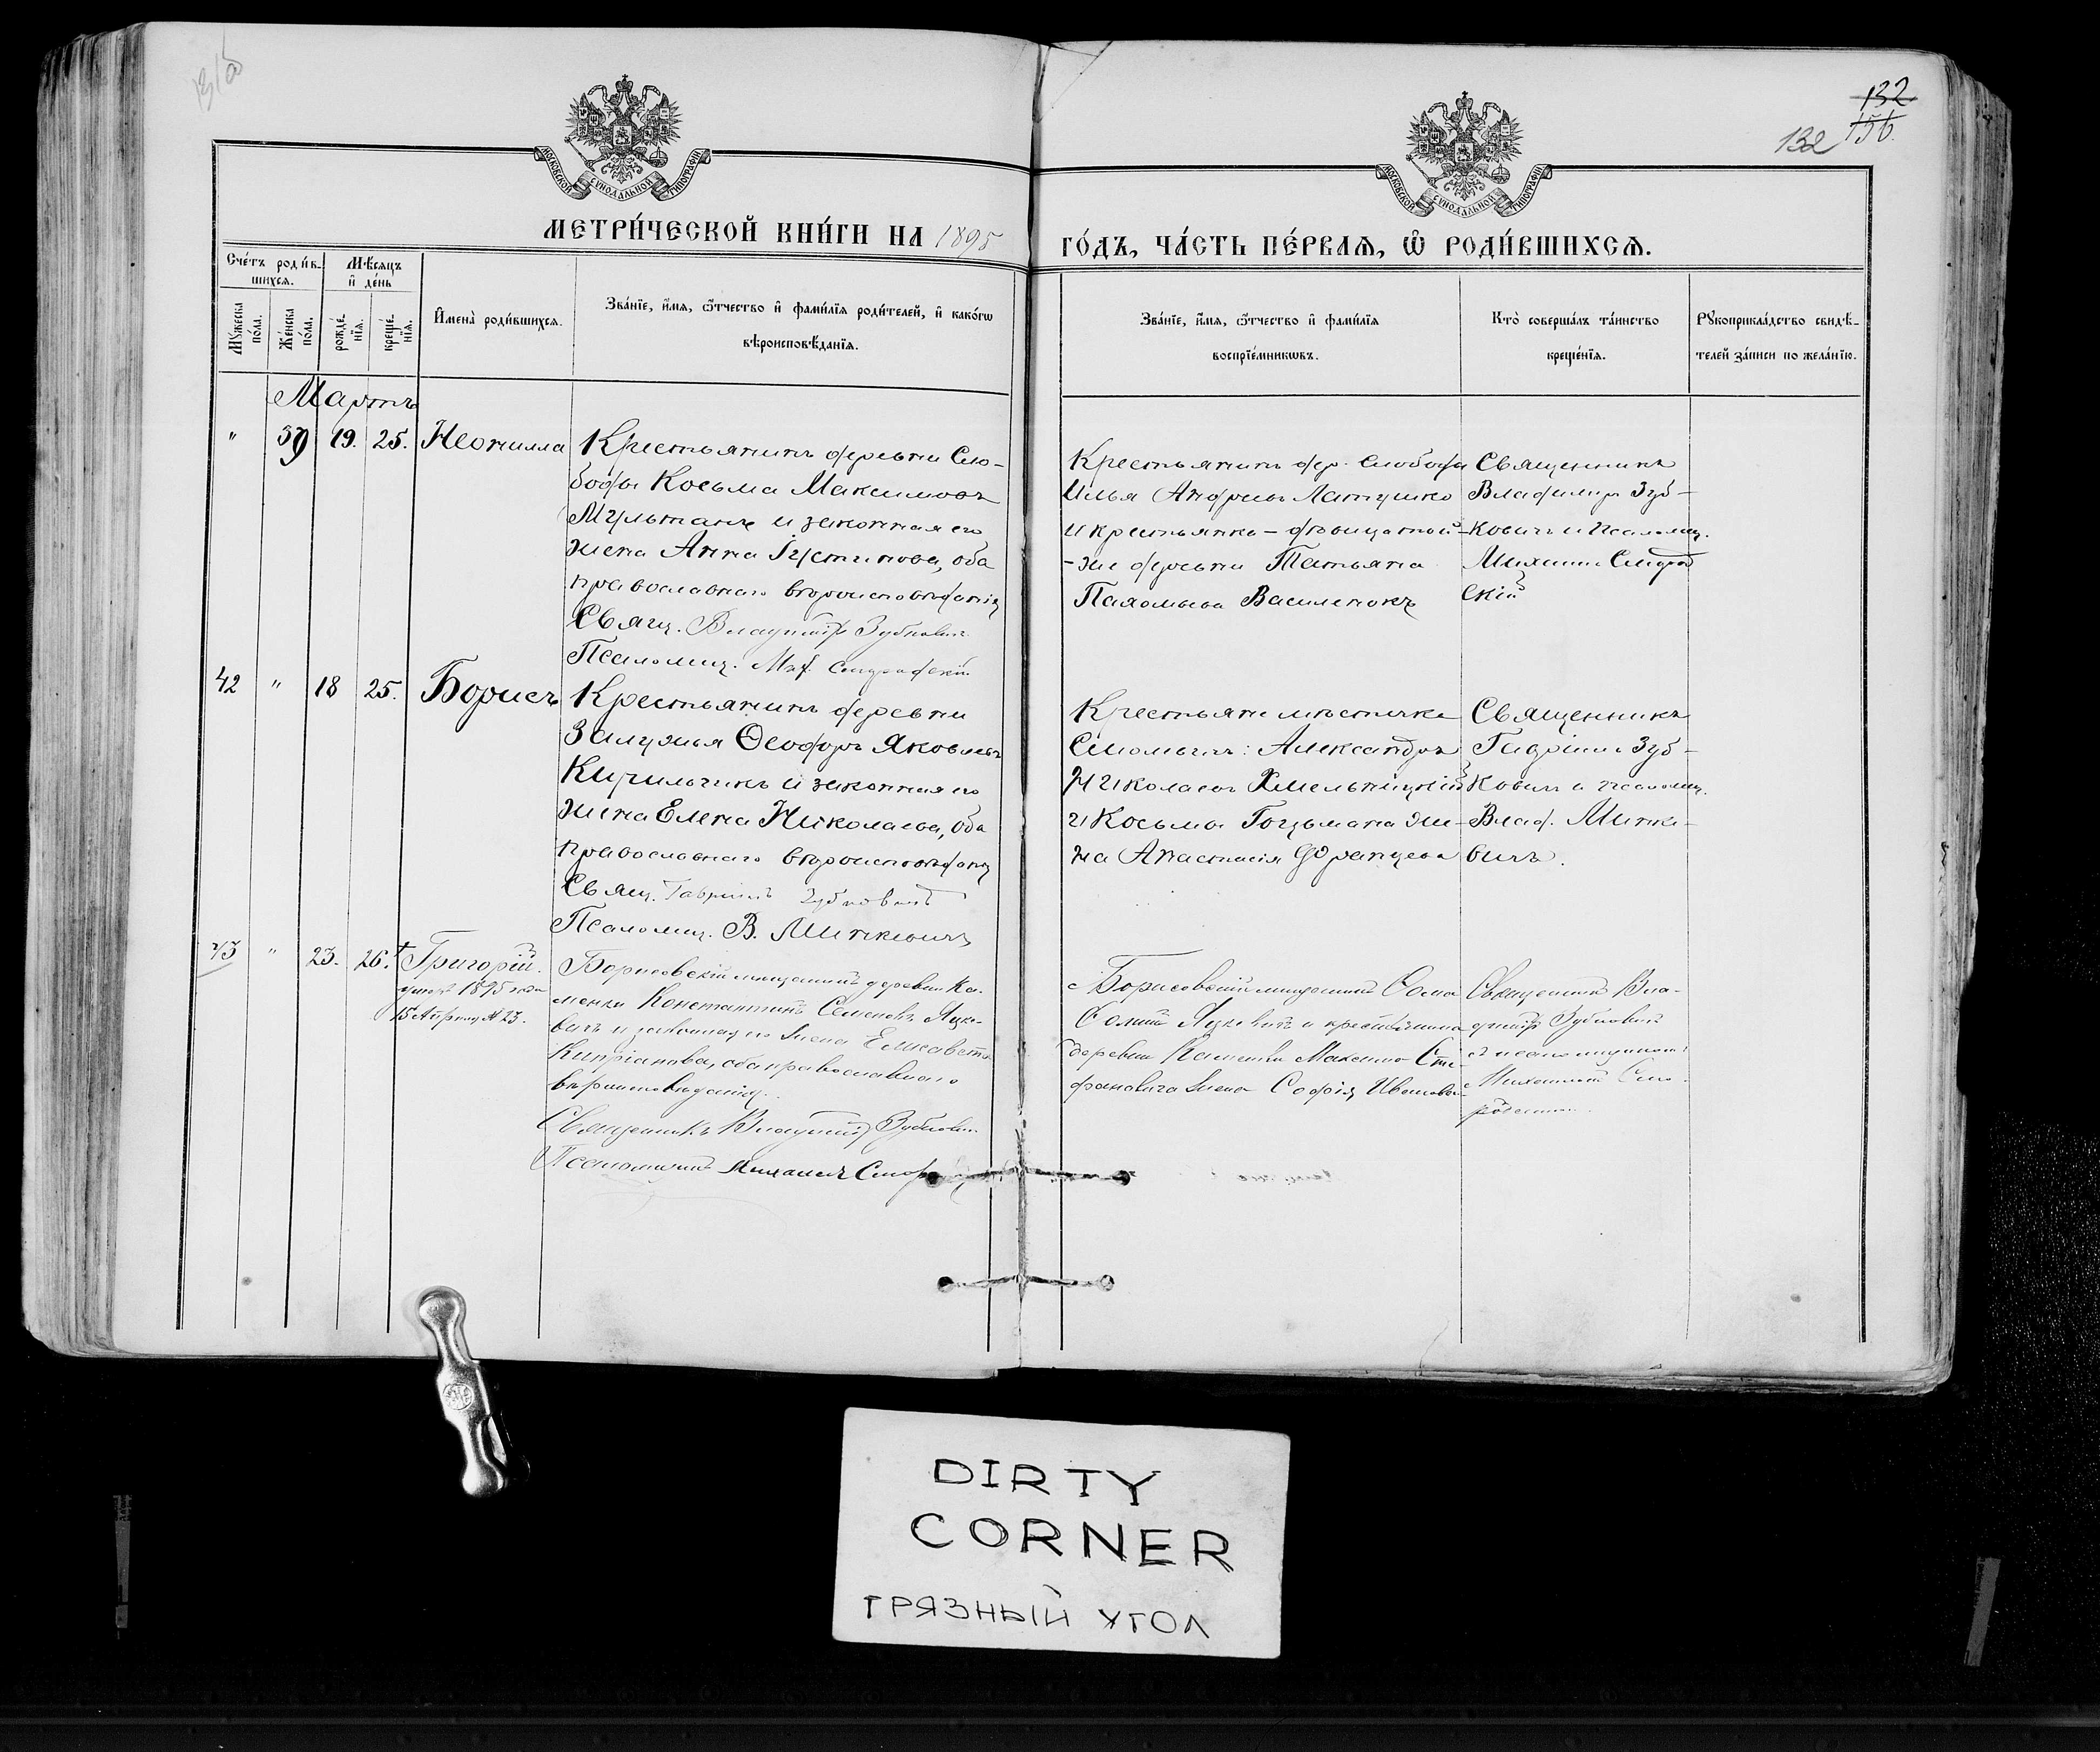 132
156.
132
МОСКОВСКОЙ СУНОДАЛЬНОЙ ТИПОГРАФІИ
МОСКОВСКОЙ СУНОДАЛЬНОЙ ТИПОГРАФІИ
МЕТРИ́ЧЕСКОЙ КНИ́ГИ НА 1895
ГО́ДЪ, ЧА́СТЬ ПЕ́РВАѦ, Ѽ РОДИ́ВШИХСѦ.
Сче́тъ роди́в-
шихсѧ.
Мѣ́сѧцъ
и҆ де́нь
Мꙋ́жеска
по́ла.
Же́нска
по́ла.
рожде́-
нїѧ.
креще́-
нїѧ.
И҆мена̀ роди́вшихсѧ.
Зва́нїе, и҆́мѧ, ѻ҆́тчество и҆ фами́лїѧ роди́телей, и҆ како́гѡ
вѣроисповѣ́данїѧ.
Зва́нїе, и҆́мѧ, ѻ҆́тчество и҆ фами́лїѧ
воспрїе́мникѡвъ.
Кто̀ соверша́лъ та́инство
креще́нїѧ.
Рꙋкоприкла́дство свидѣ́-
телей за́писи по жела́нїю.
Мартъ
" 39 19. 25. Неонилла
Крестьянинъ деревни Сло-
боды Косьма Максимовъ
Мультанъ и законная его
жена Анна Іустинова, оба
православнаго вѣроисповѣданія
Свящ. Владиміръ Зубковичъ
Псаломщ. Мих.
Крестьянинъ дер. Слободы
Илья Андреевъ Латушко
и крестьянка
-же деревни Татьяна
Пахомьева Василенокъ
Священникъ
Владиміръ Зуб-
ковичъ и Псаломщ.
Михаилъ
скій
42 " 18 25. Борисъ
Крестьянинъ деревни
Залужья Ѳеодоръ Яковлевъ
Кирильчикъ и законная его
жена Елена Николаева, оба
православнаго вѣроисповѣданія
Свящ. Гавріилъ Зубковичъ
Псаломщ. В. Минкевичъ
Крестьяне мѣстечка
Смолевичъ: Александръ
Николаевъ Хмельницкій
и Косьмы Гоцмана же-
на Анастасія Францева
Священникъ
Гавріилъ Зуб-
ковичъ и псаломщ.
Влад. Минке-
вичъ.
43 " 23. 26. † Григорій.
умеръ 1895 года
15 Апрѣля № 23.
Борисовскій мѣщанинъ деревни Ка-
менки Константинъ Семеновъ Яцке-
вичъ и законная его жена Елисавета
Кипріанова, оба православнаго
вѣроисповѣданія.
Священникъ Владиміръ Зубковичъ
Псаломщикъ Михаилъ
Борисовскій мѣщанинъ Ѳома
Яцкевичъ и крестьянина
деревни Каменки Максима Сте-
фановича жена Софія Иванова
Священникъ Вла-
диміръ Зубковичъ
съ псаломщикомъ
Михаиломъ
DIRTY
CORNER
ГРЯЗНЫЙ УГОЛ